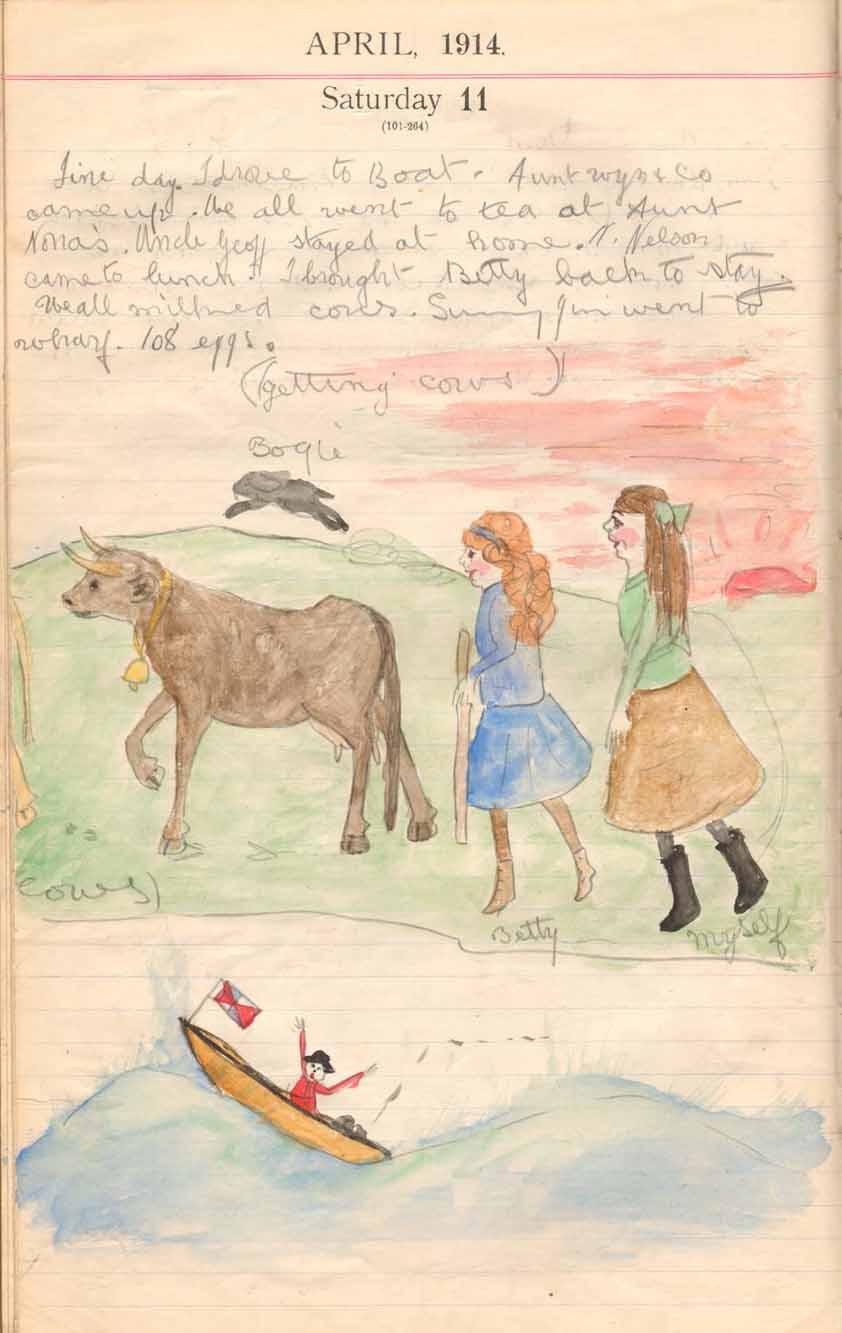 APRIL, 1914.
Saturday 11
(101-264)
Fine day. I drove to Boat. Aunt Wyn & Co
came up. We all went to tea at Aunt
Nona's. Uncle Geoff stayed at home. N. Nelson
came to lunch. I brought Betty back to stay.
We all milked cows. Sunny Jim went to
wharf. 108 eggs.
(getting cows)
Bogie
cows)
Betty
Myself